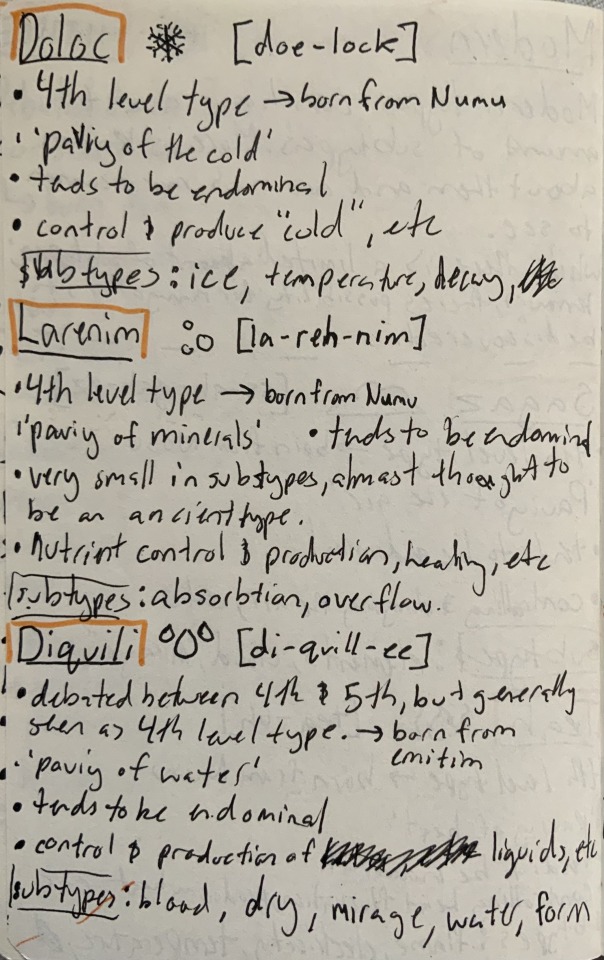 Doloc [doe-lock]
• 4th level type → born from Numu
'paviy of the cold'
• tends to be endominal
• control & produce "cold", etc
subtypes: ice, temperature, decay,
Larenim [la-reh-nim]
• 4th level type → born from Numu
'paviy of minerals' • tends to be endominal
• very small in subtypes, almost thought to
be an ancient type.
• Nutrient control & production, healing, etc
subtypes: absorbtion, overflow.
Diquili [di-quill-ee]
• debated between 4th & 5th, but generally
seen as 4th level type. → born from
emitim
• 'paviy of water'
• tends to be endominal
• control & production of liquids, etc
subtypes: blood, dry, mirage, water, form